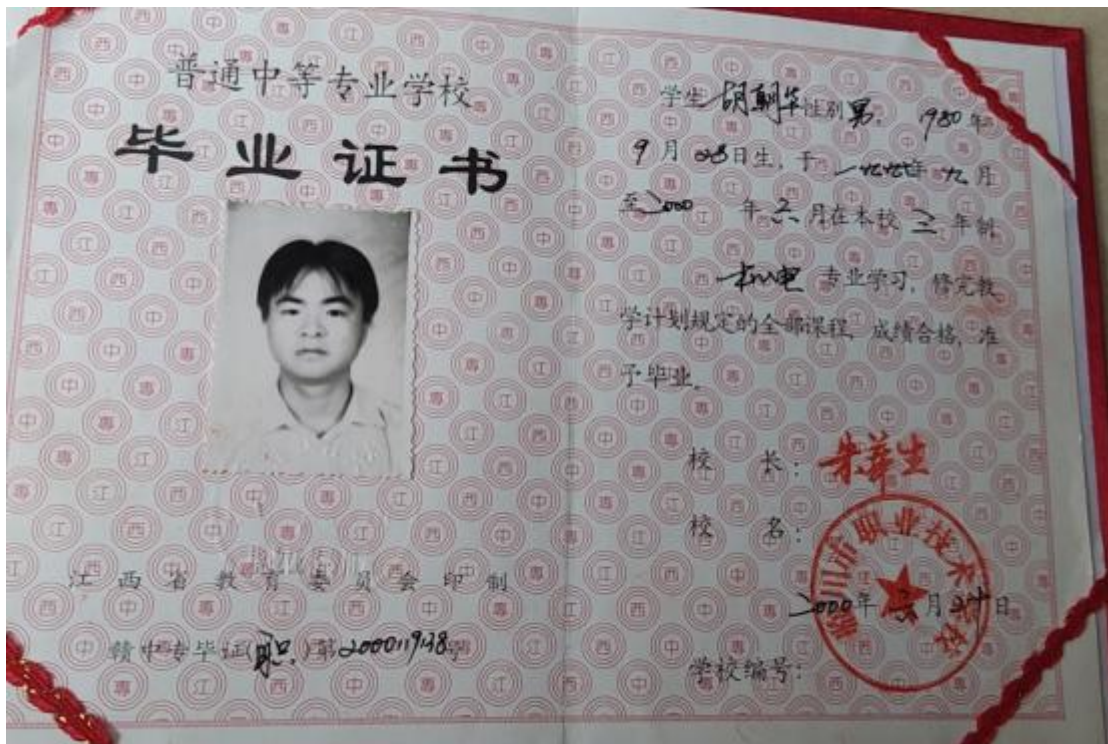 普通中等专业学校
毕业证书
江西省教育委员会印制
赣中专毕证(职)第200011938号
学生 胡朝华 性别 男, 1980 年
9 月 28 日生, 于 一九九七年 九 月
至 2000 年 六 月在本校 三 年制
机电 专业学习, 修完教
学计划规定的全部课程, 成绩合格, 准
予毕业。
校 长: 朱华生
校 名:
临川市职业技术学校
2000年 六 月 日
学校编号: